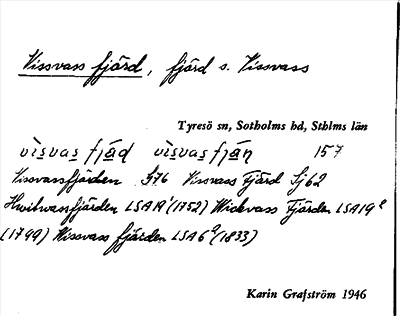 Vissvass fjärd, fjärd s. Vissvass
Tyresö sn, Sotholms hd, Sthlms län
vìsvas fjäd vìsvas fjän 157
Vissvassfjärden §76 Vissvass Fjärd Sj62
LSA19¹(1752) Widevass Fjärden LSA19²
(1799) Wissvass fjärden LSA6²(1833)
Karin Grafström 1946